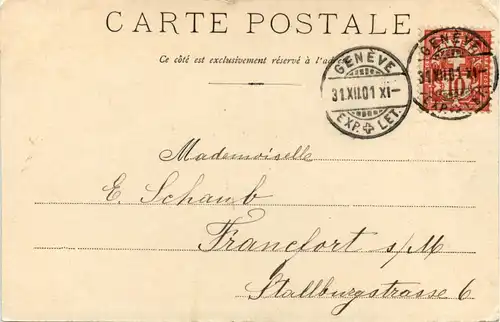 CARTE POSTALE
Ce côté est exclusivement réservé à l'adr
GENÈVE
31.XII.01 XI—
EXP. LET.
GENÈVE
31.XII.01 XI
10
Mademoiselle
E. Schaub
Francfort s/M
Stallburgstrasse 6